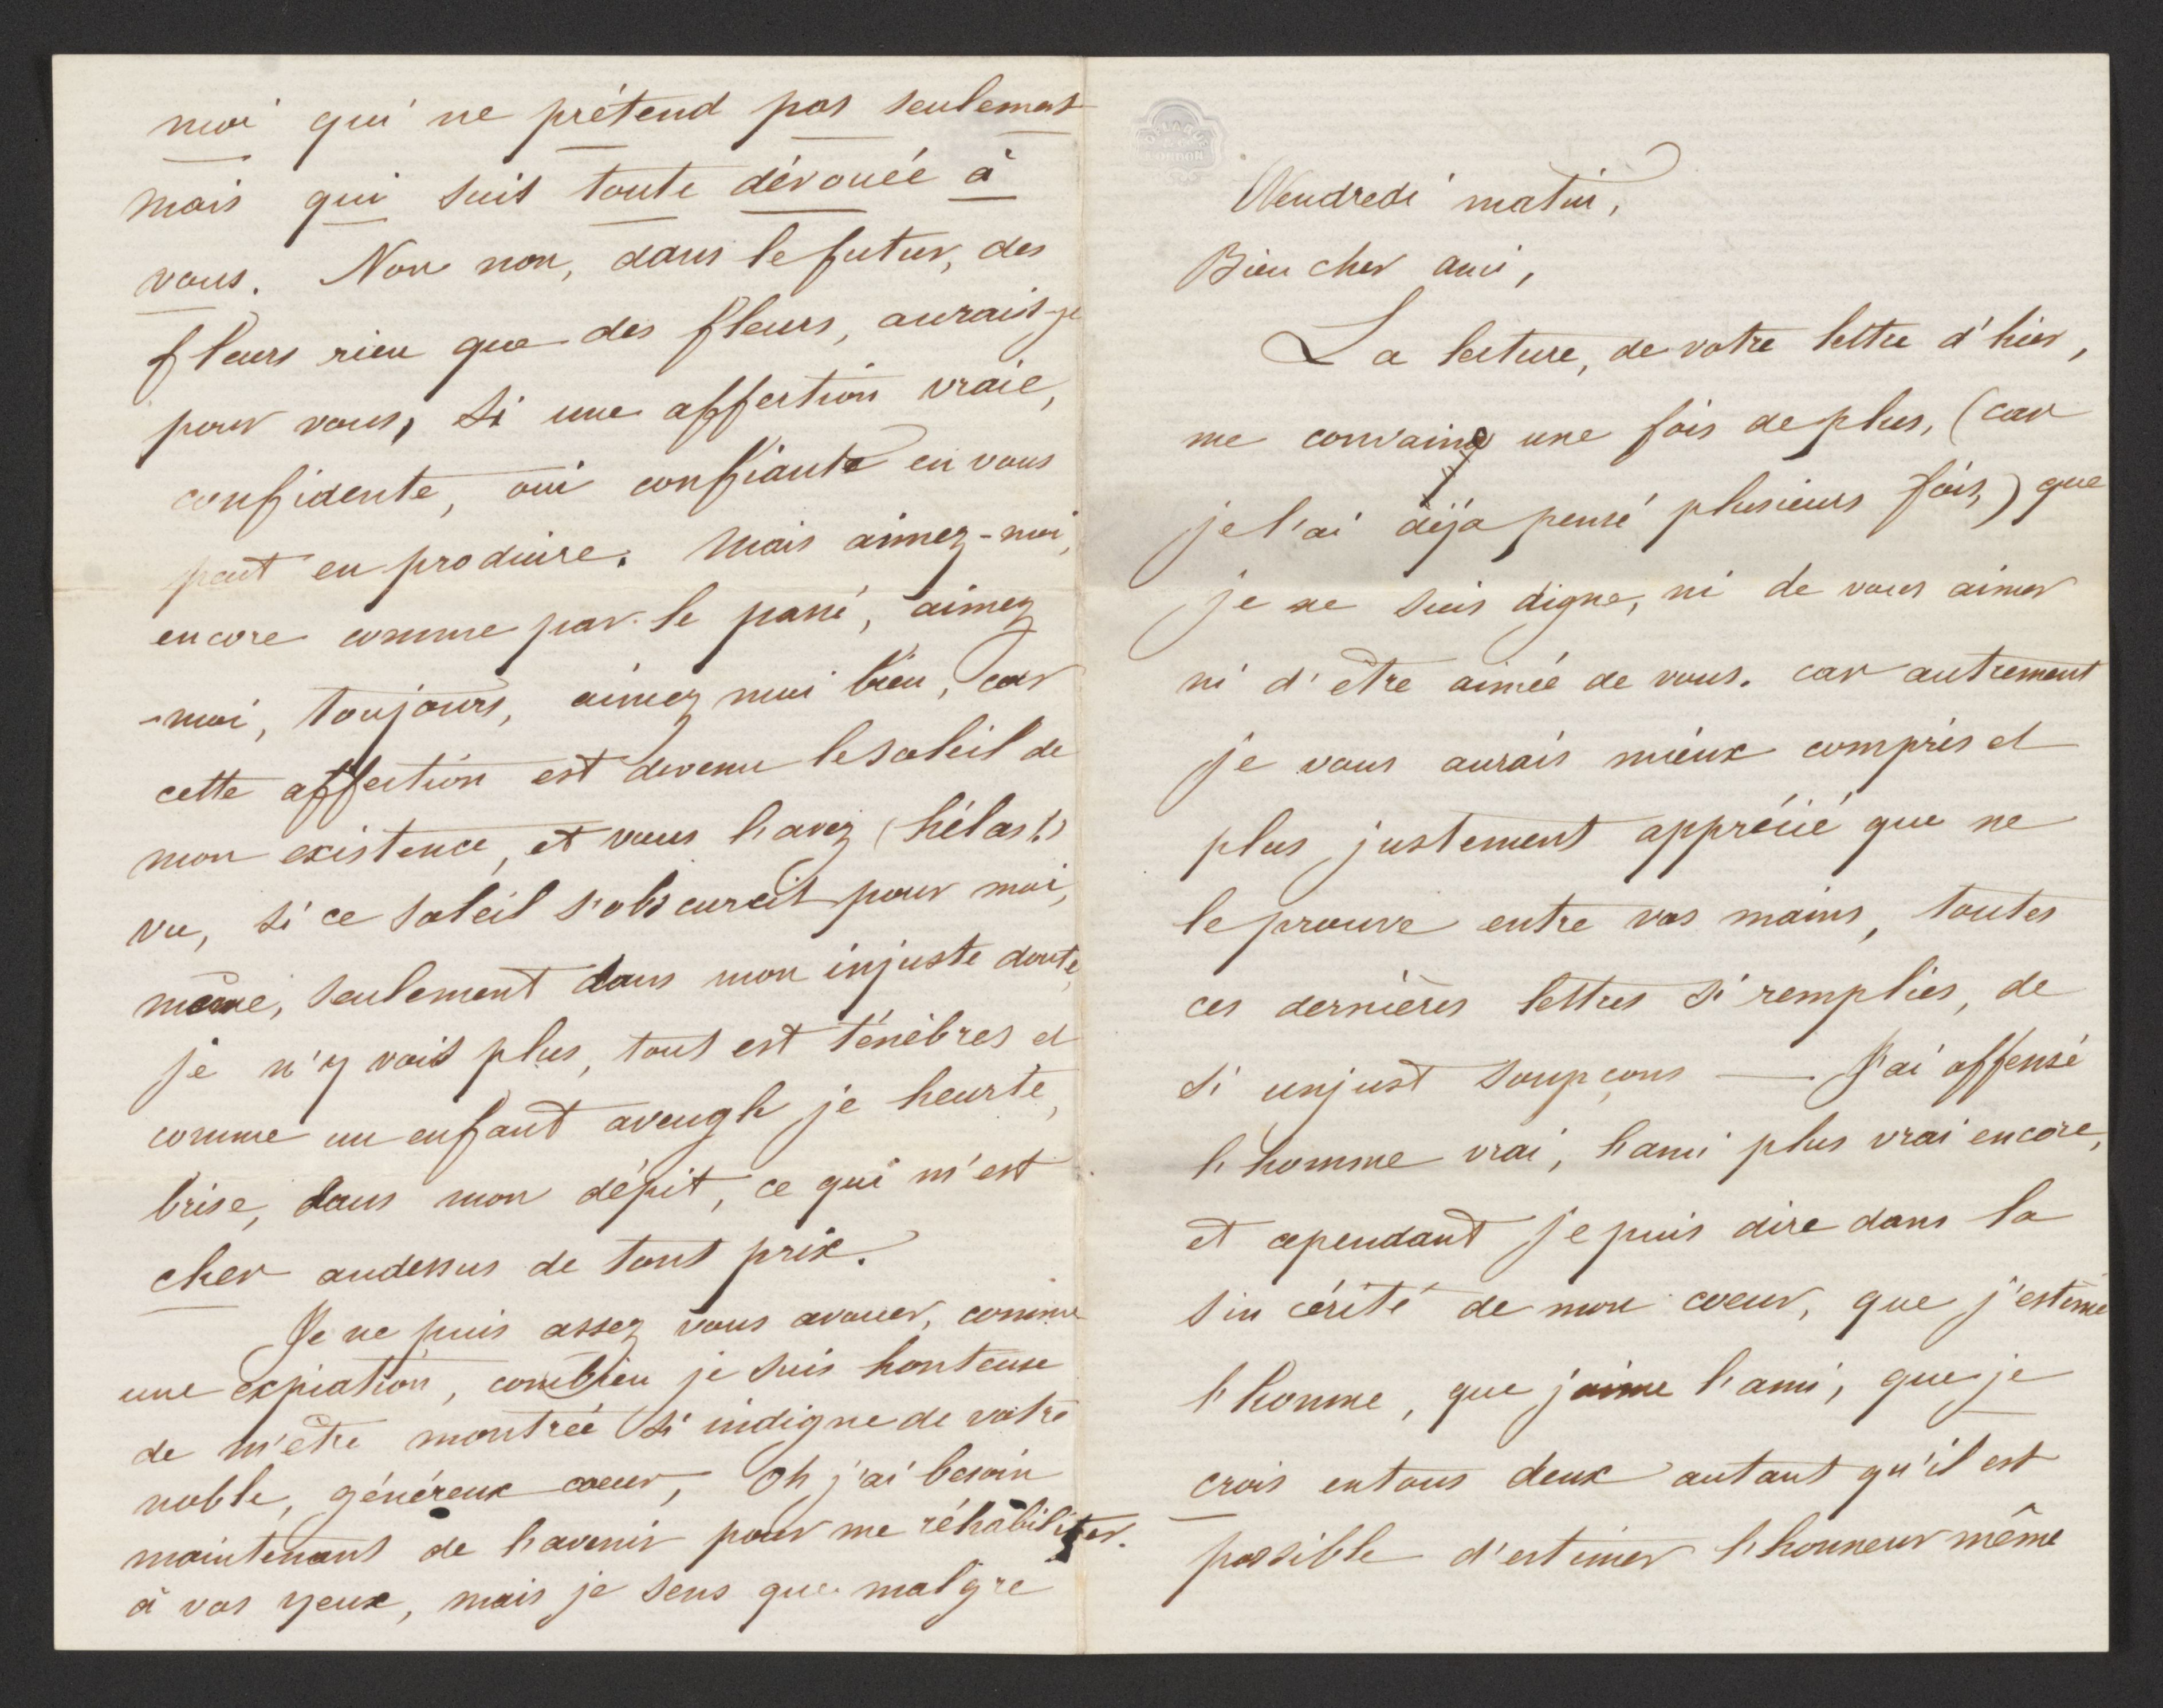 moi qui ne prétend pas seulement
mais qui suis toute dévouée à
vous. Non non, dans le futur, des
fleurs rien que des fleurs, aurais-je
pour vous, si une affection vraie,
confidente, oui confiante en vous
peut en produire. Mais aimez-moi,
encore comme par le passé, aimez
-moi, toujours, aimez moi bien, car
cette affection est devenu le soleil de
mon existence, et vous l'avez (hélas!)
vu, si ce soleil s'obscurcit pour moi,
même, seulement dans mon injuste doute,
je n'y vois plus, tout est ténèbres et
comme un enfant aveugle je heurte,
brise, dans mon dépit, ce qui m'est
cher audessus de tout prix.
Je ne puis assez vous avouer, comme
une expiation, combien je suis honteuse
de m'être montrée si indigne de votre
noble, généreux coeur, Oh j'ai besoin
maintenant de l'avenir pour me réhabiliter.
à vos yeux, mais je sens que malgré
DELARUE
& CO
LONDON
Vendredi matin,
Bien cher ami,
La lecture, de votre lettre d'hier,
me convainq une fois de plus, (car
je l'ai déja pensé plusieurs fois,) que
je ne suis digne, ni de vous aimer
ni d'être aimée de vous. car autrement
je vous aurais mieux compris et
plus justement apprécié que ne
le prouve entre vos mains, toutes
ces dernières lettres si remplies, de
si unjust soupçons — J'ai offensé
l'homme vrai, l'ami plus vrai encore,
et cependant je puis dire dans la
sincérité de mon coeur, que j'estime
l'homme, que j'aime l'ami, que je
crois en tous deux autant qu'il est
possible d'estimer l'honneur même